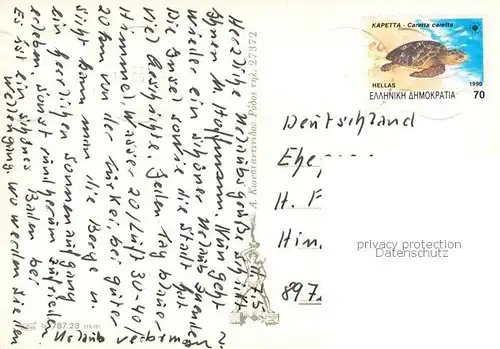 Herzliche Urlaubsgrüße schickt
Ihnen M. Hoffmann. Nun geht
wieder ein schöner Urlaub zuende
Die Insel sowie die Stadt hat
viel Geschichte. Jeden Tag blauer
Himmel, Wasser 20/Luft 30-40/
20 km von der Türkei, bei guter
Sicht kann man die Berge u.
ein herrlichen Sonnenaufgang
erleben. Sonst rundherum zufrieden
Es ist ein schönes Baden bei
Wellengang. Wo werden Sie den
Urlaub verbringen?
Α. Κωνσταντινίδου Ρόδος τηλ. 27372
787.23
ΚΑΡΕΤΤΑ - Caretta caretta
HELLAS 1990
ΕΛΛΗΝΙΚΗ ΔΗΜΟΚΡΑΤΙΑ 70
Deutschland
Ehe
H.
Hin
897
privacy protection
Datenschutz